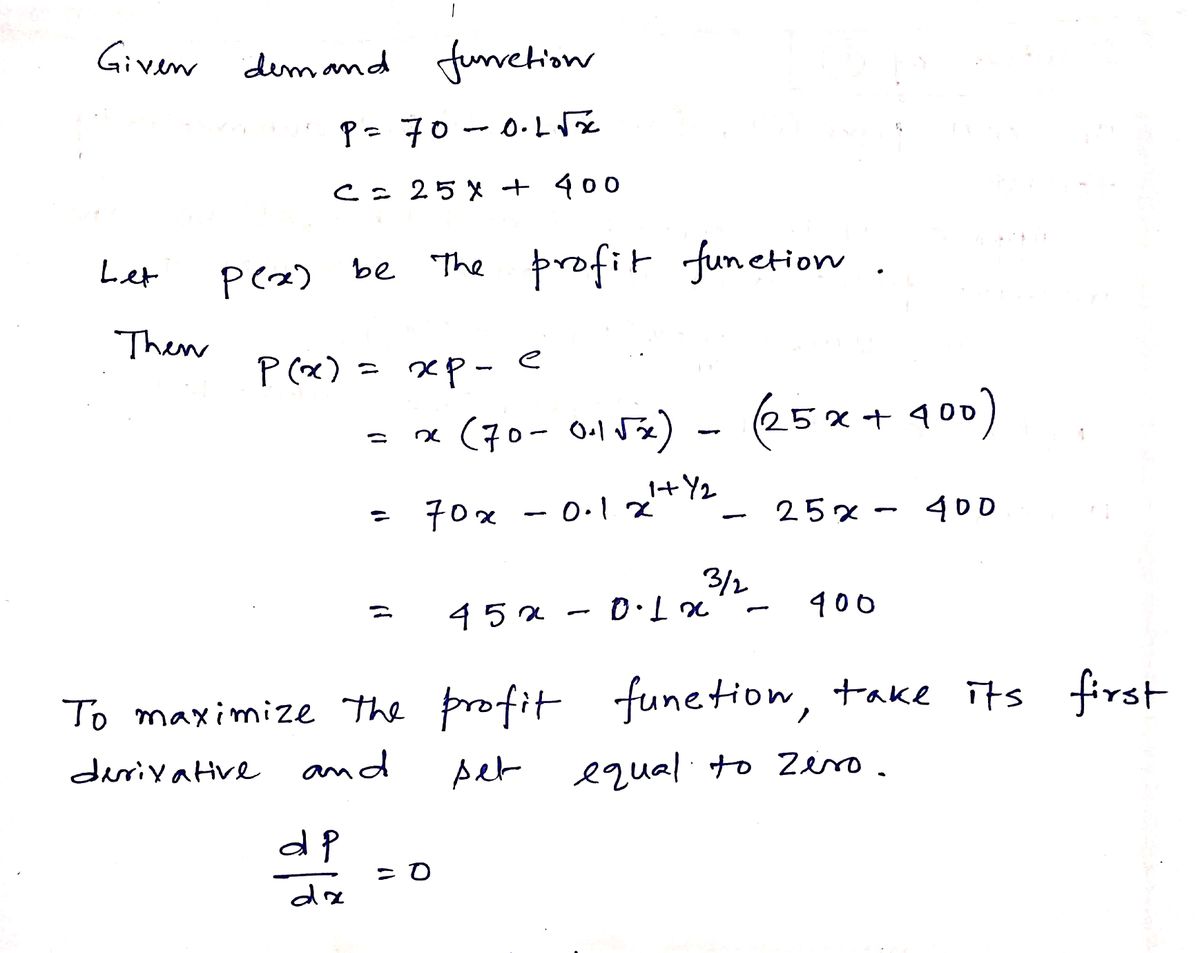 Given demand function
p = 70 - 0.1√x
C = 25x + 400
Let P(x) be the profit function.
Then
P(x) = xp - c
= x (70 - 0.1√x) - (25x + 400)
= 70x - 0.1 x^{1+1/2} - 25x - 400
= 45x - 0.1 x^{3/2} - 400
To maximize the profit function, take its first
derivative and set equal to zero.
dP/dx = 0